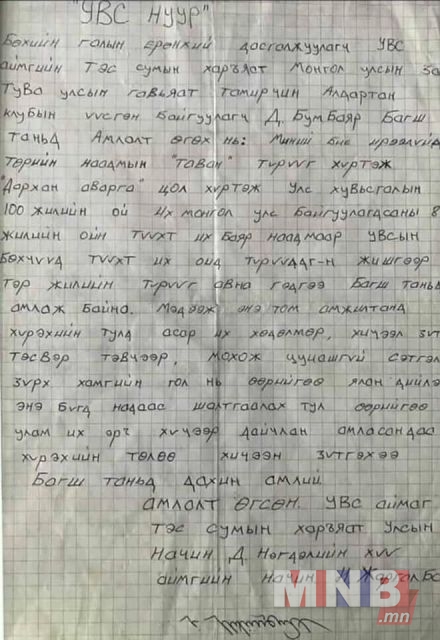 "УВС НУУР"
Бөхийн галын ерөнхий дасгалжуулагч УВС
аймгийн Тэс сумын харъяат Монгол улсын за
ТУВА улсын гавьяат тамирчин Алдартан
клубын үүсгэн байгуулагч Д. БумБаяр Багш
таньд Амлолт өгөх нь: Миний бие ирээдүйд
төрийн наадмын "таван" түрүүг хүртэж
"Дархан аварга" цол хүртэж улс хувьсгалын
100 жилийн ой их монгол улс Байгуулагдсаны 8
жилийн ойн түүхт их баяр наадмаар УВСын
Бөхчүүд түүхт их ойд түрүүлдэг-н жишгээр
тэр жилийн түрүүг авна гэдгээ Багш таньд
амлаж байна. Мэдээж энэ том амжилтанд
хүрэхийн тулд асар их хөдөлмөр, хичээл зүт
тэсвэр тэвчээр, мохож цуцашгүй сэтгэл
зүрх хамгийн гол нь өөрийгөө ялан дийлэ
энэ бүгд надаас шалтгаалах тул өөрийгөө
улам их эрч хүчээр дайчлан амласандаа
хүрэхийн төлөө хичээн зүтгэхээ
Багш таньд дахин амлий.
амлалт өгсөн. УВС аймаг
тэс сумын харъяат Улсын
Начин Д. Нэгдэлийн хүү
аймгийн начин Н. Жаргалба
MNB
.mn